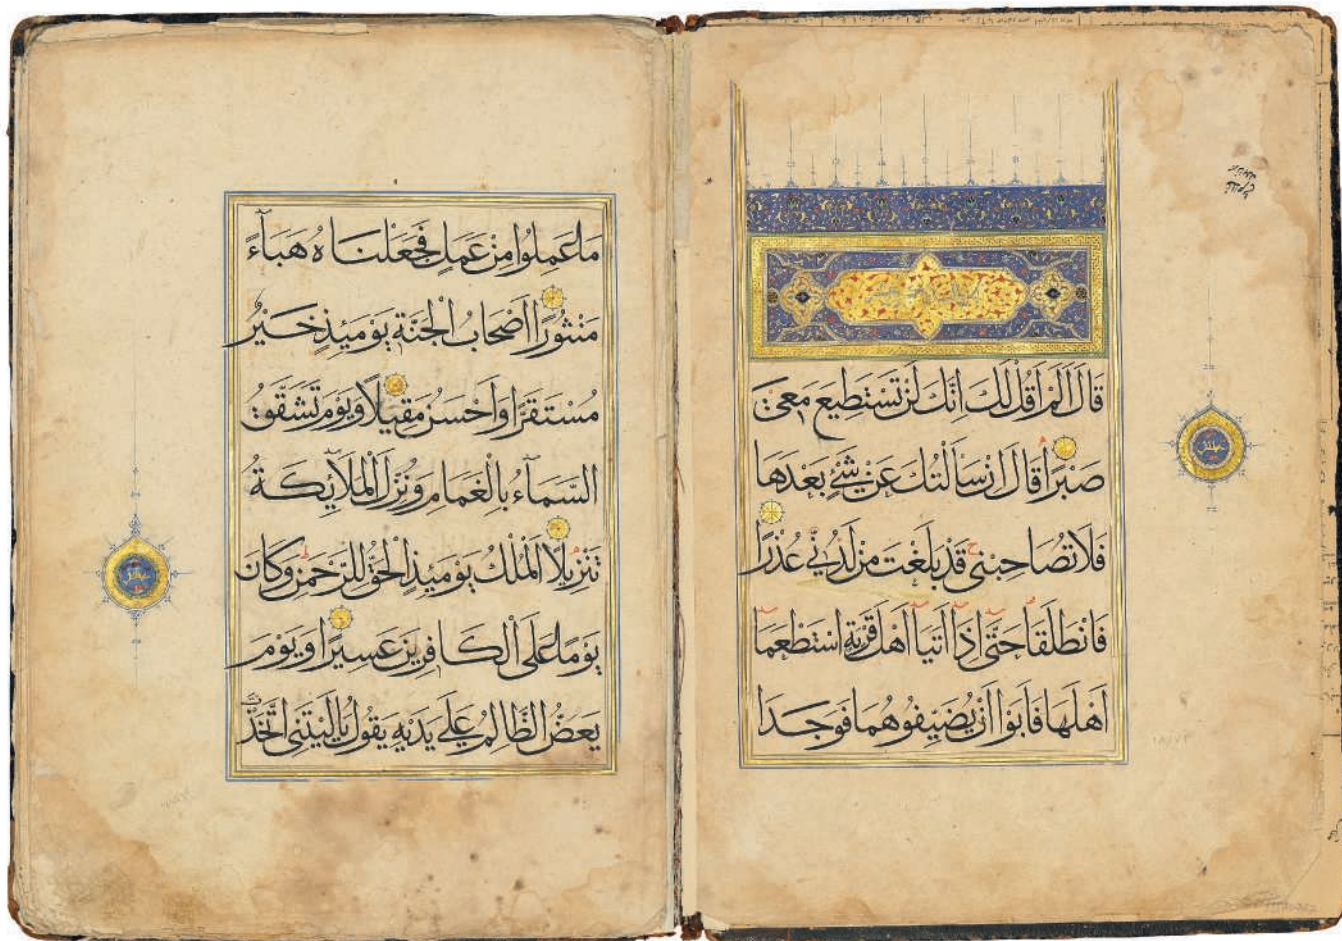 قَالَ أَلَمْ أَقُلْ لَكَ إِنَّكَ لَنْ تَسْتَطِيعَ مَعِيَ
صَبْرًا قَالَ إِنْ سَأَلْتُكَ عَنْ شَيْءٍ بَعْدَهَا
فَلَا تُصَاحِبْنِي قَدْ بَلَغْتَ مِنْ لَدُنِّي عُذْرًا
فَانْطَلَقَا حَتَّى إِذَا أَتَيَا أَهْلَ قَرْيَةٍ اسْتَطْعَمَا
أَهْلَهَا فَأَبَوْا أَنْ يُضَيِّفُوهُمَا فَوَجَدَا
مَا عَمِلُوا مِنْ عَمَلٍ فَجَعَلْنَاهُ هَبَاءً
مَنْثُورًا أَصْحَابُ الْجَنَّةِ يَوْمَئِذٍ خَيْرٌ
مُسْتَقَرًّا وَأَحْسَنُ مَقِيلًا وَيَوْمَ تَشَقَّقُ
السَّمَاءُ بِالْغَمَامِ وَنُزِّلَ الْمَلَائِكَةُ
تَنْزِيلًا الْمُلْكُ يَوْمَئِذٍ الْحَقُّ لِلرَّحْمَنِ وَكَانَ
يَوْمًا عَلَى الْكَافِرِينَ عَسِيرًا وَيَوْمَ
يَعَضُّ الظَّالِمُ عَلَى يَدَيْهِ يَقُولُ يَا لَيْتَنِي اتَّخَذْتُ